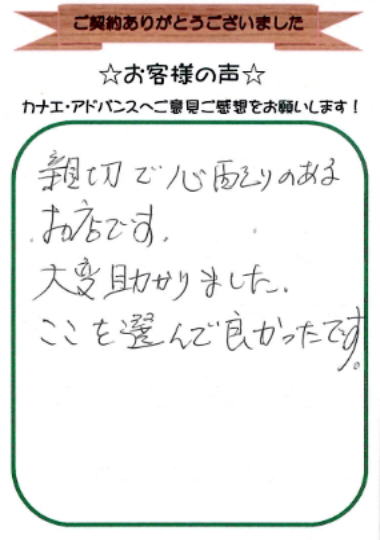 ご契約ありがとうございました
☆お客様の声☆
カナエ・アドバンスへご意見ご感想をお願いします!
親切で心配りのある
お店です。
大変助かりました。
ここを選んで良かったです。